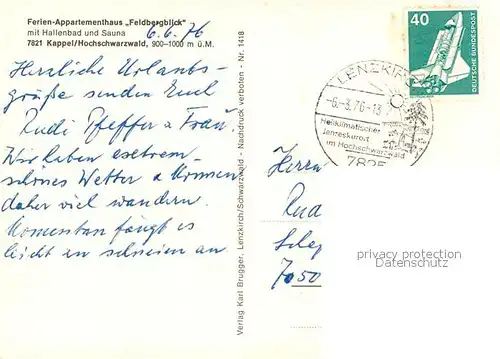 Ferien-Appartementhaus „Feldbergblick"
mit Hallenbad und Sauna
7821 Kappel/Hochschwarzwald, 900-1000 m ü.M.
6.6.76
Herzliche Urlaubs-
grüße senden Euch
Rudi Pfeffer u Frau.
Wir haben
schönes Wetter u können
daher viel wandern.
Momentan fängt es
leicht an schneien an
Verlag Karl Brugger, Lenzkirch/Schwarzwald - Nachdruck verboten - Nr. 1418
40
DEUTSCHE BUNDESPOST
LENZKIRCH
-6.-3.76-13
Heilklimatischer
Jahreskurort
im Hochschwarzwald
7825
Herrn
Rud
7050
privacy protection
Datenschutz